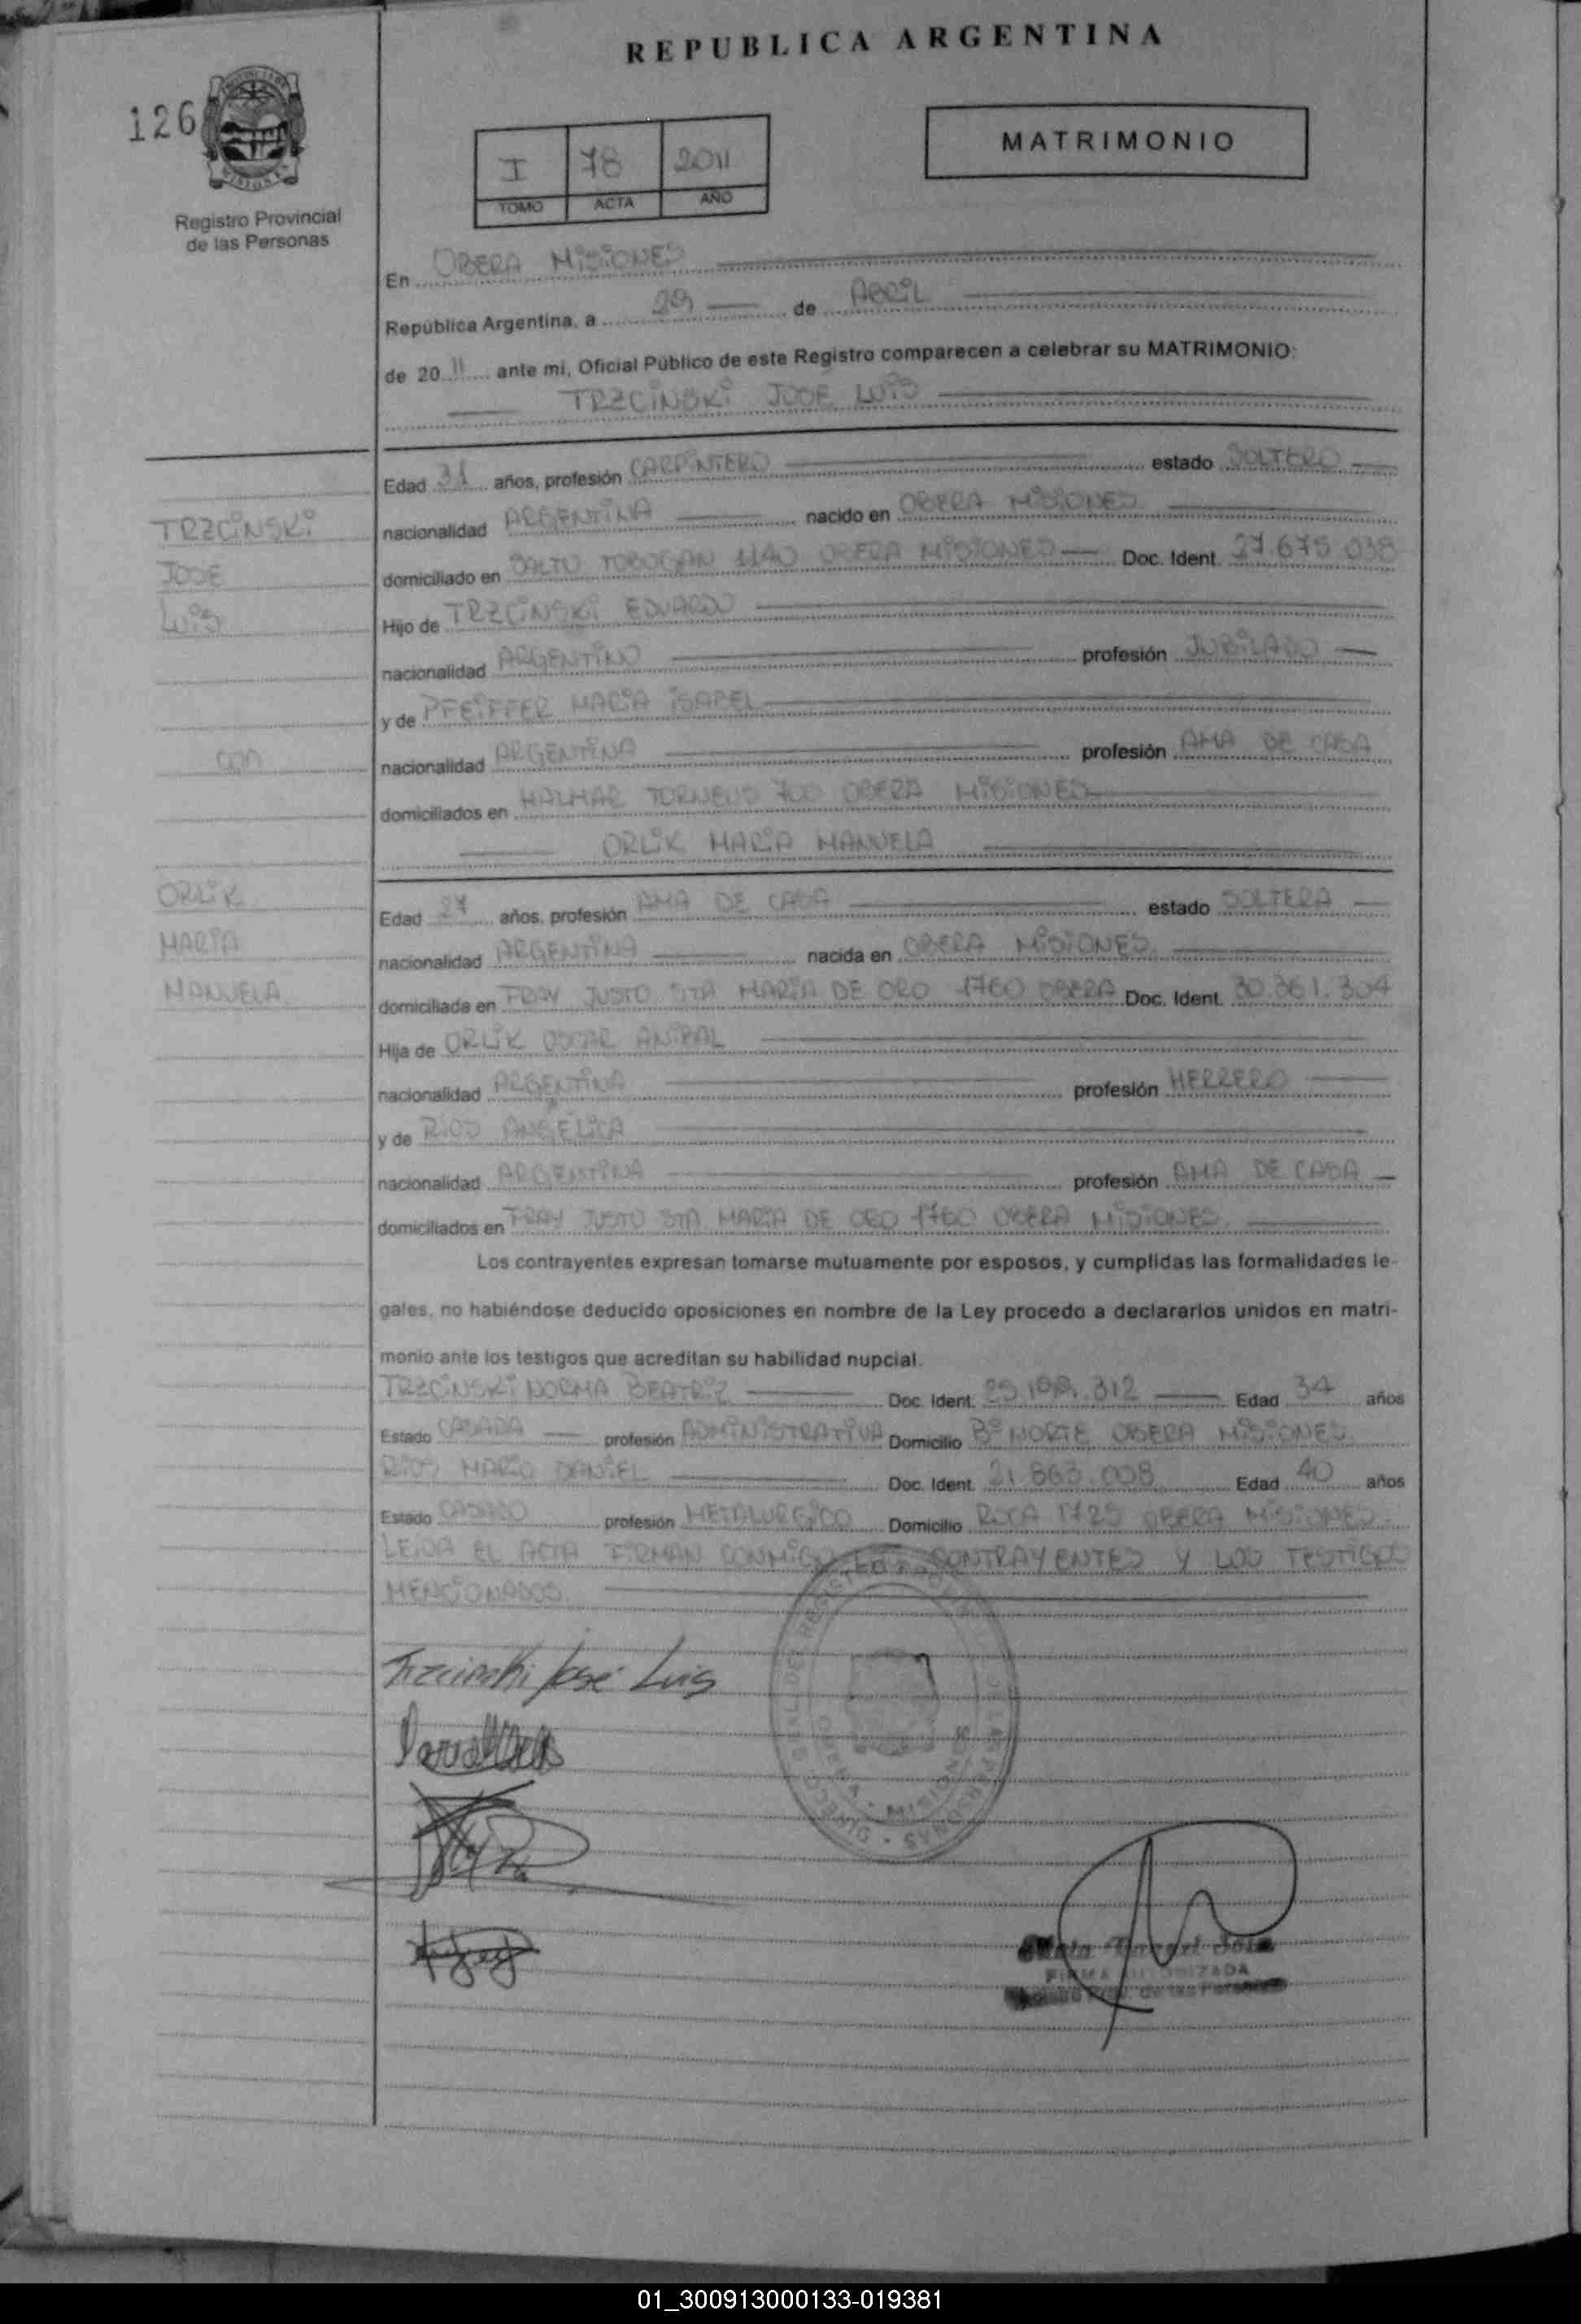 REPUBLICA ARGENTINA
126
MATRIMONIO
I 78 2011
TOMO ACTA AÑO
Registro Provincial
de las Personas
En OBERA MISIONES
República Argentina, a 29 de ABRIL
de 2011 ante mi, Oficial Público de este Registro comparecen a celebrar su MATRIMONIO:
TRZCINSKI JOSE LUIS
Edad 31 años, profesión CARPINTERO estado SOLTERO
TRZCINSKI
nacionalidad ARGENTINA nacido en OBERA MISIONES
JOSE
domiciliado en SALTO TOBOGAN 1140 OBERA MISIONES Doc. Ident. 27.675.038
LUIS
Hijo de TRZCINSKI EDUARDO
nacionalidad ARGENTINO profesión JUBILADO
y de PFEIFFER MARIA ISABEL
CON
nacionalidad ARGENTINA profesión AMA DE CASA
domiciliados en HALMAR TORNEUS 700 OBERA MISIONES
ORLIK MARIA MANUELA
ORLIK
Edad 27 años, profesión AMA DE CASA estado SOLTERA
MARIA
nacionalidad ARGENTINA nacida en OBERA MISIONES
MANUELA
domiciliada en FRAY JUSTO STA MARIA DE ORO 1760 OBERA Doc. Ident. 30.361.304
Hija de ORLIK OSCAR ANIBAL
nacionalidad ARGENTINA profesión HERRERO
y de RIOS ANGELICA
nacionalidad ARGENTINA profesión AMA DE CASA
domiciliados en FRAY JUSTO STA MARIA DE ORO 1760 OBERA MISIONES
Los contrayentes expresan tomarse mutuamente por esposos, y cumplidas las formalidades le-
gales, no habiéndose deducido oposiciones en nombre de la Ley procedo a declararlos unidos en matri-
monio ante los testigos que acreditan su habilidad nupcial.
TRZCINSKI NORMA BEATRIZ Doc. Ident. Edad 34 años
Estado CASADA profesión ADMINISTRATIVA Domicilio Bº NORTE OBERA MISIONES
RIOS MARIO DANIEL Doc. Ident. 21.863.008 Edad 40 años
Estado CASADO profesión METALURGICO Domicilio ROCA 1725 OBERA MISIONES.
LEIDA EL ACTA FIRMAN CONMIGO LOS CONTRAYENTES Y LOS TESTIGOS
MENCIONADOS.
Trzcinski José Luis
OBERA - MISIONES
FIRMA AUTORIZADA
de las Personas
01_300913000133-019381